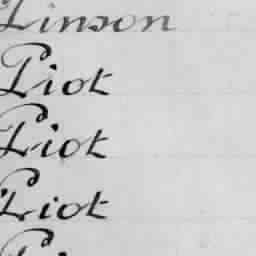 Linson
Piot
Piot
Piot